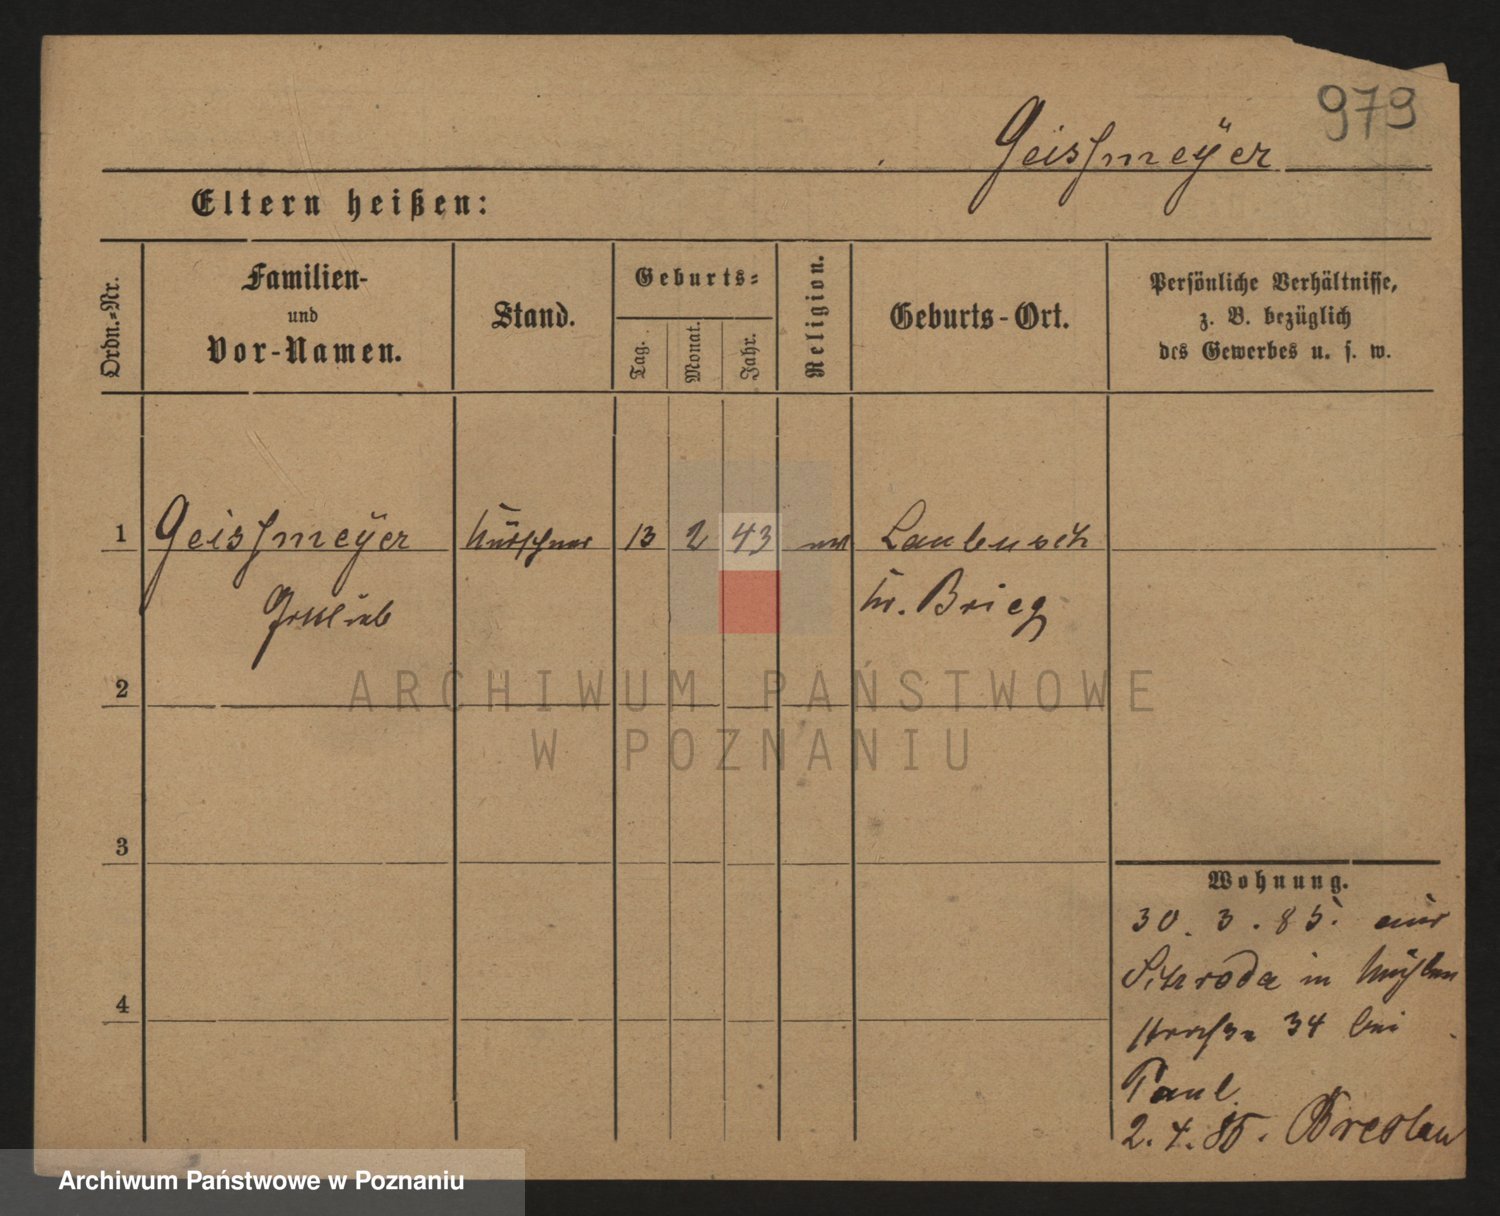 979
Geissmeÿer
Eltern heißen:
Ordn.=Nr.
Familien-
und
Vor-Namen.
Stand.
Geburts=
Tag.
Monat.
Jahr.
Religion.
Geburts-Ort.
Persönliche Verhältnisse,
z. B. bezüglich
des Gewerbes u. s. w.
1 Geissmeÿer Kürschner 13 2 43
Gottlieb Kr. Brieg
2
3
4
Wohnung.
30. 3. 85. aus
Schroda in Mühlen
straße 34 bei
Paul
2. 4. 85. Breslau
ARCHIWUM PAŃSTWOWE
W POZNANIU
Archiwum Państwowe w Poznaniu